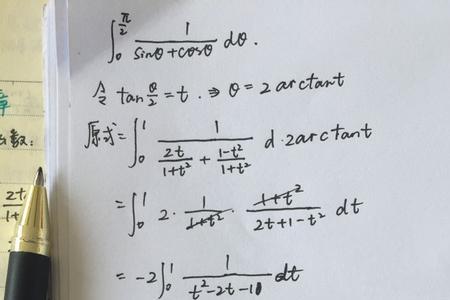 ∫₀^(π/2) 1/(sinθ+cosθ) dθ.
令 tan θ/2 = t. ⇒ θ = 2arctant
原式 = ∫₀¹ 1/(2t/(1+t²) + (1-t²)/(1+t²)) d·2arctant
= ∫₀¹ 2· 1/(1+t²) · (1+t²)/(2t+1-t²) dt
= -2∫₀¹ 1/(t²-2t-1) dt
章
数:
2t
1+